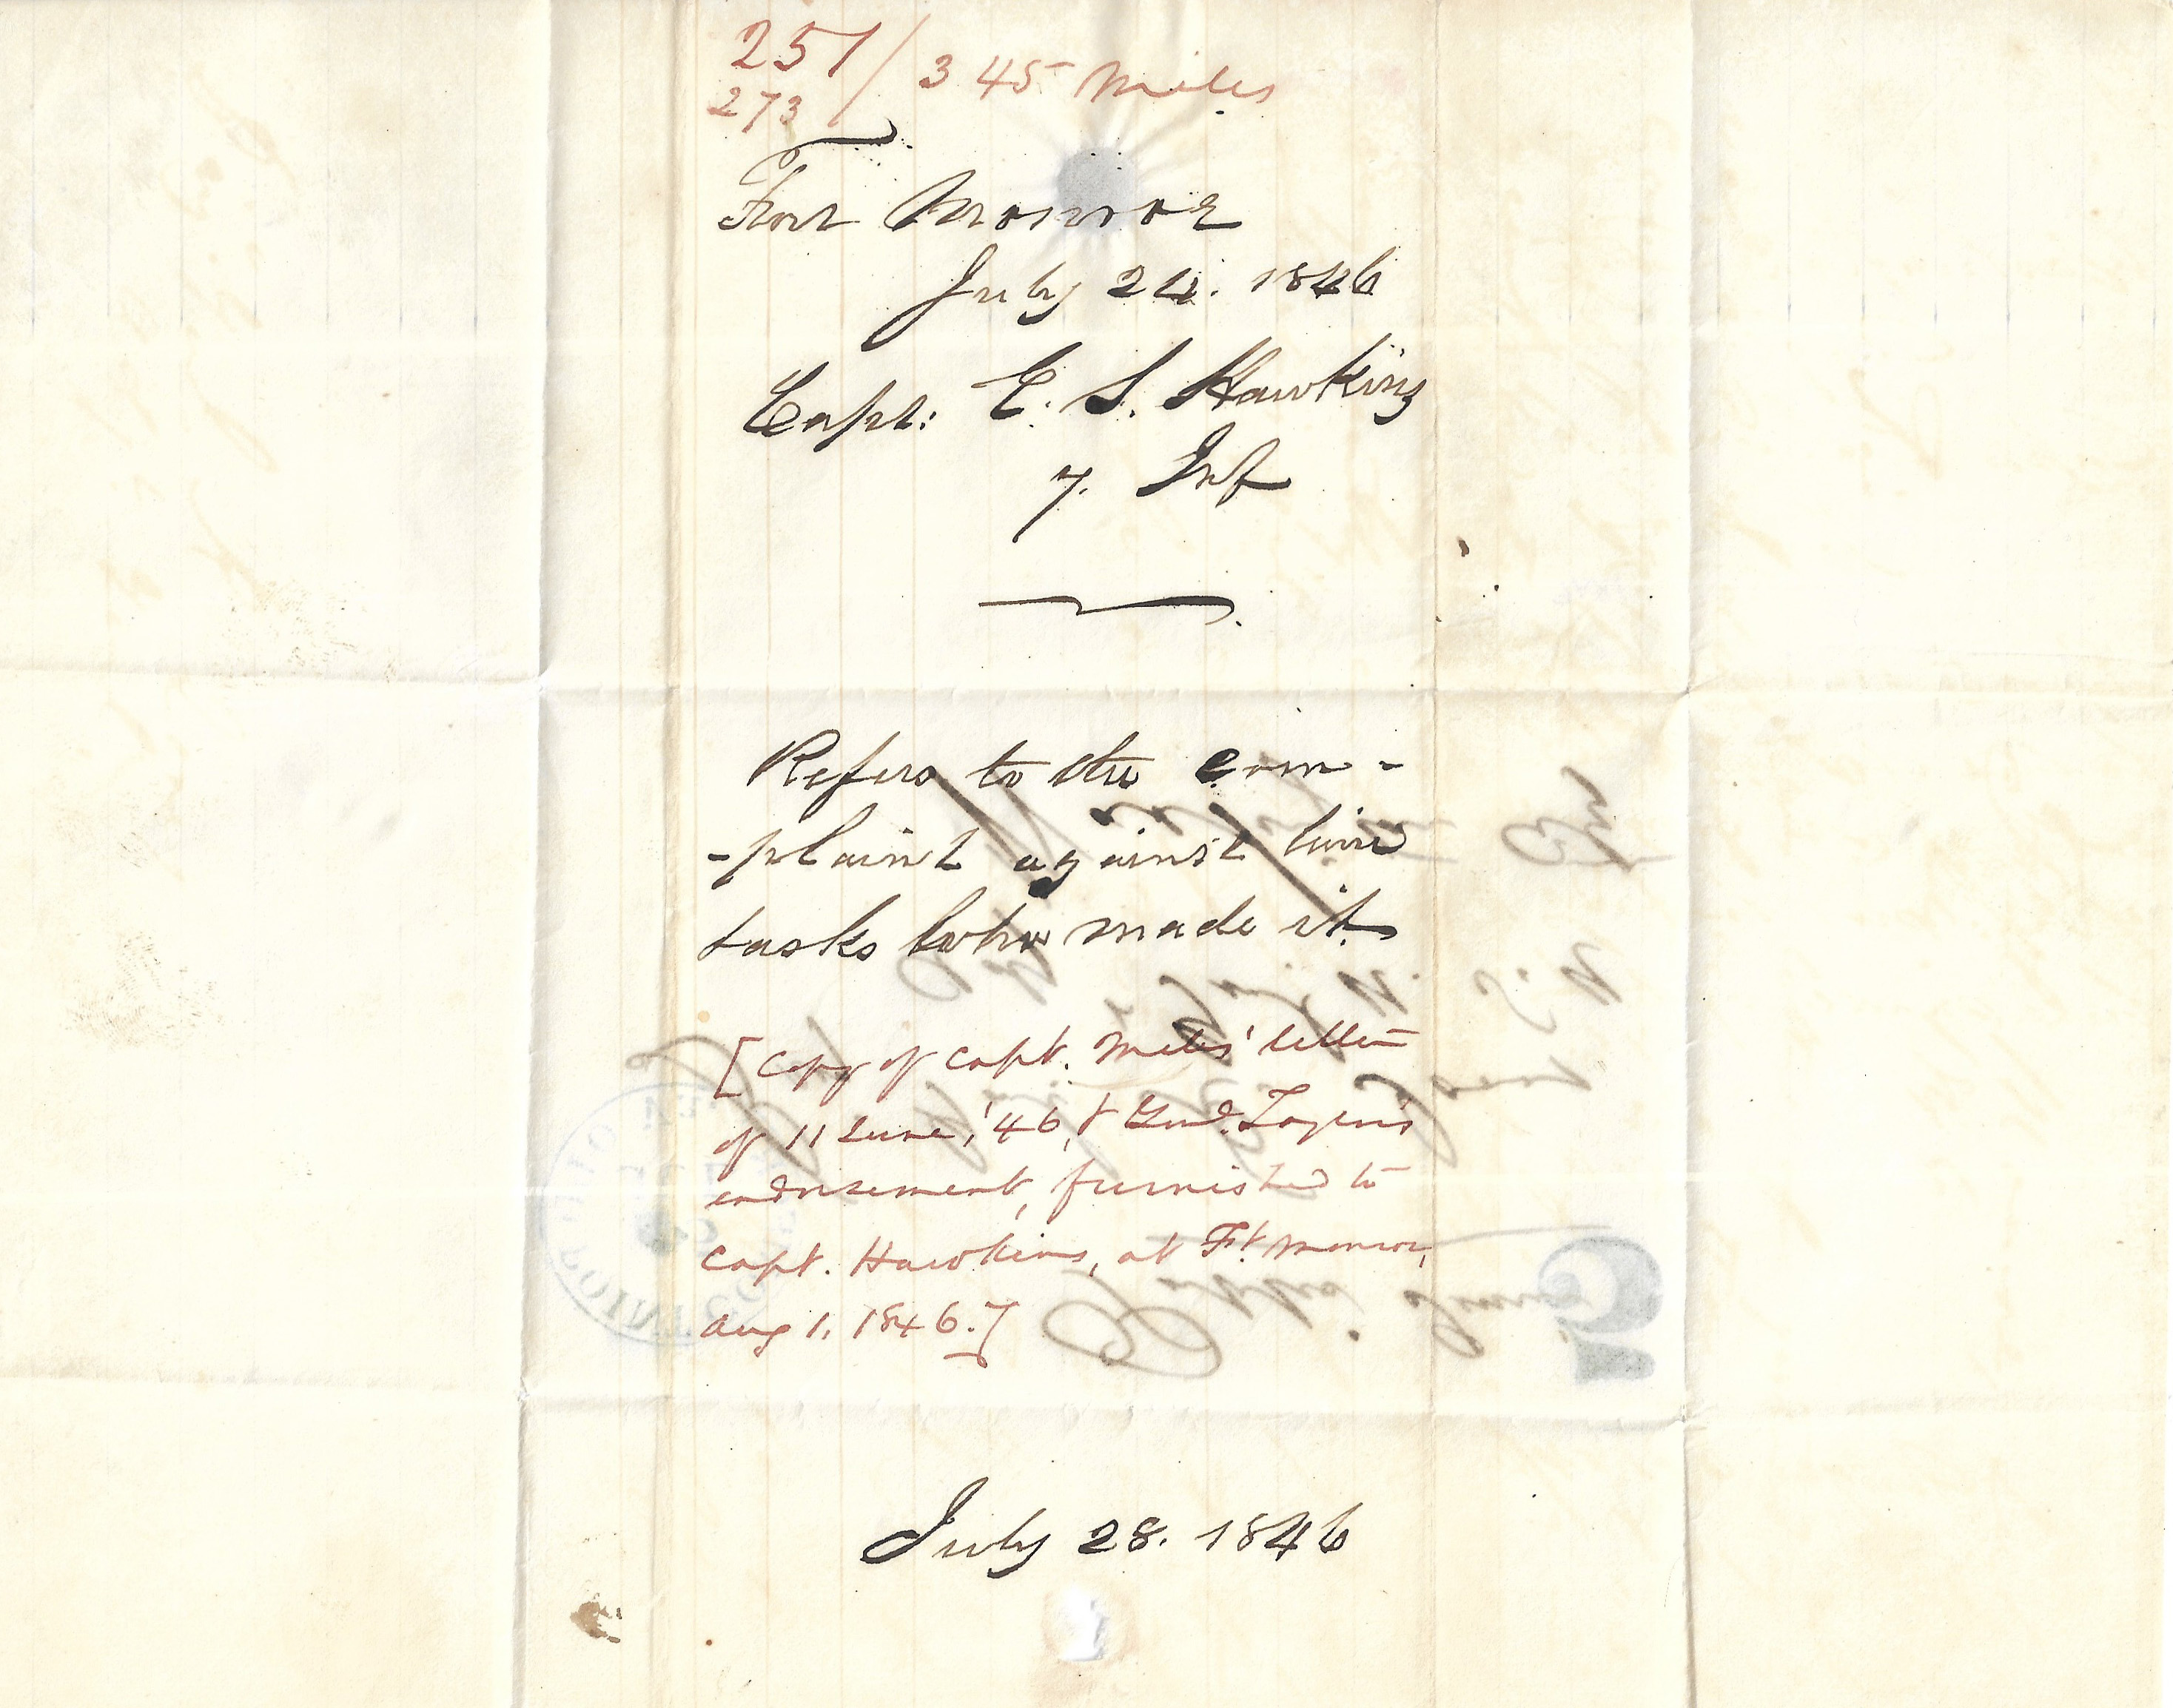 251 / 345 Miles
273
Fort Monroe
July 24. 1846
Capt: E. S. Hawkins
7. Inf
Refers to the com-
-plaint against him
&asks who made it.
[Copy of Capt. Miles' letter
of 11 June, '46, & Genl. Taylor's
endorsement, furnished to
Capt. Hawkins, at Ft. Monroe,
Aug 1, 1846.]
July 28. 1846
5